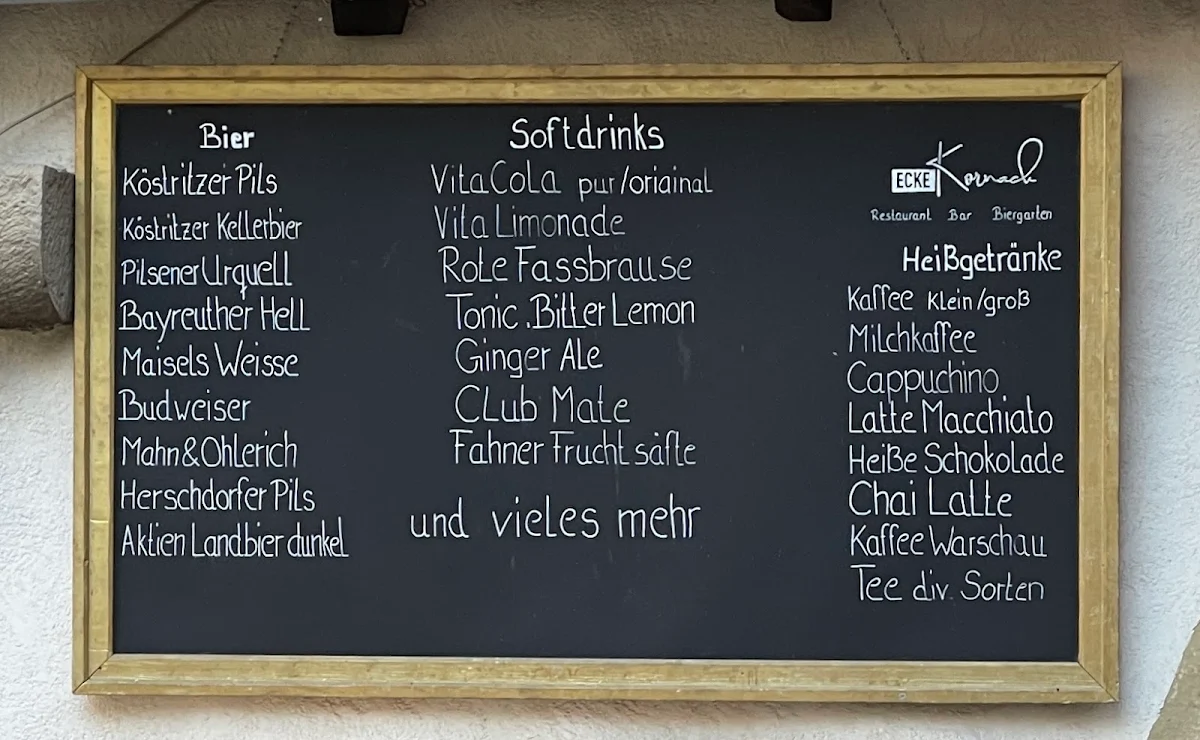 Bier
Köstritzer Pils
Köstritzer Kellerbier
Pilsener Urquell
Bayreuther Hell
Maisels Weisse
Budweiser
Mahn&Ohlerich
Herschdorfer Pils
Aktien Landbier dunkel
Softdrinks
Vita Cola pur/oriainal
Vita Limonade
Rote Fassbrause
Tonic.Bitter Lemon
Ginger Ale
CLub Mate
Fahner Frucht säfte
und vieles mehr
ECKE Kornach
Restaurant Bar Biergarten
Heißgetränke
Kaffee Klein/groß
Milchkaffee
Cappuchino
Latte Macchiato
Heiße Schokolade
Chai Latte
Kaffee Warschau
Tee div. Sorten